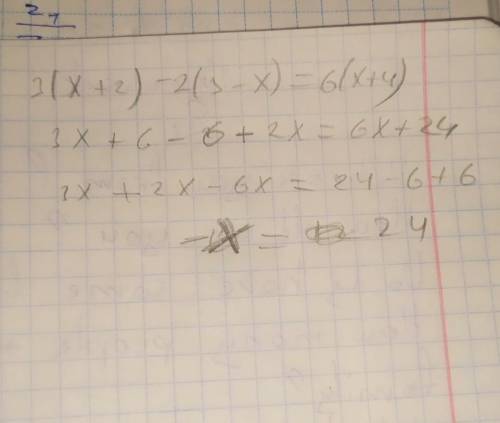 3(x+2)-2(3-x)=6(x+4)
3x+6-6+2x=6x+24
3x+2x-6x=24-6+6
-x=24